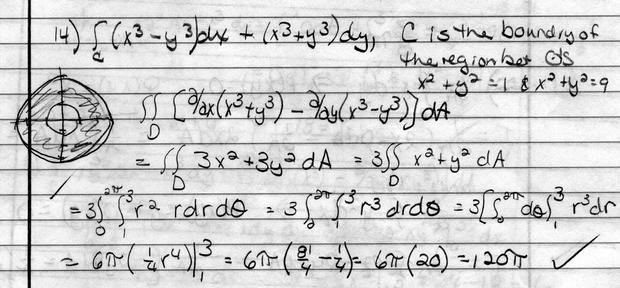 14) ∫_C (x³ - y³)dx + (x³+y³)dy, C is the boundry of
the region bet ⊙s
x² + y² = 1 & x² + y² = 9
∬_D [∂/∂x(x³+y³) - ∂/∂y(x³-y³)] dA
= ∬_D 3x²+3y² dA = 3∬_D x²+y² dA
= 3∫_0^2π ∫_1^3 r² r dr dθ = 3∫_0^2π ∫_1^3 r³ dr dθ = 3[∫_0^2π dθ ∫_1^3 r³ dr
= 6π(1/4 r⁴)|_1^3 = 6π(81/4 - 1/4) = 6π(20) = 120π ✓